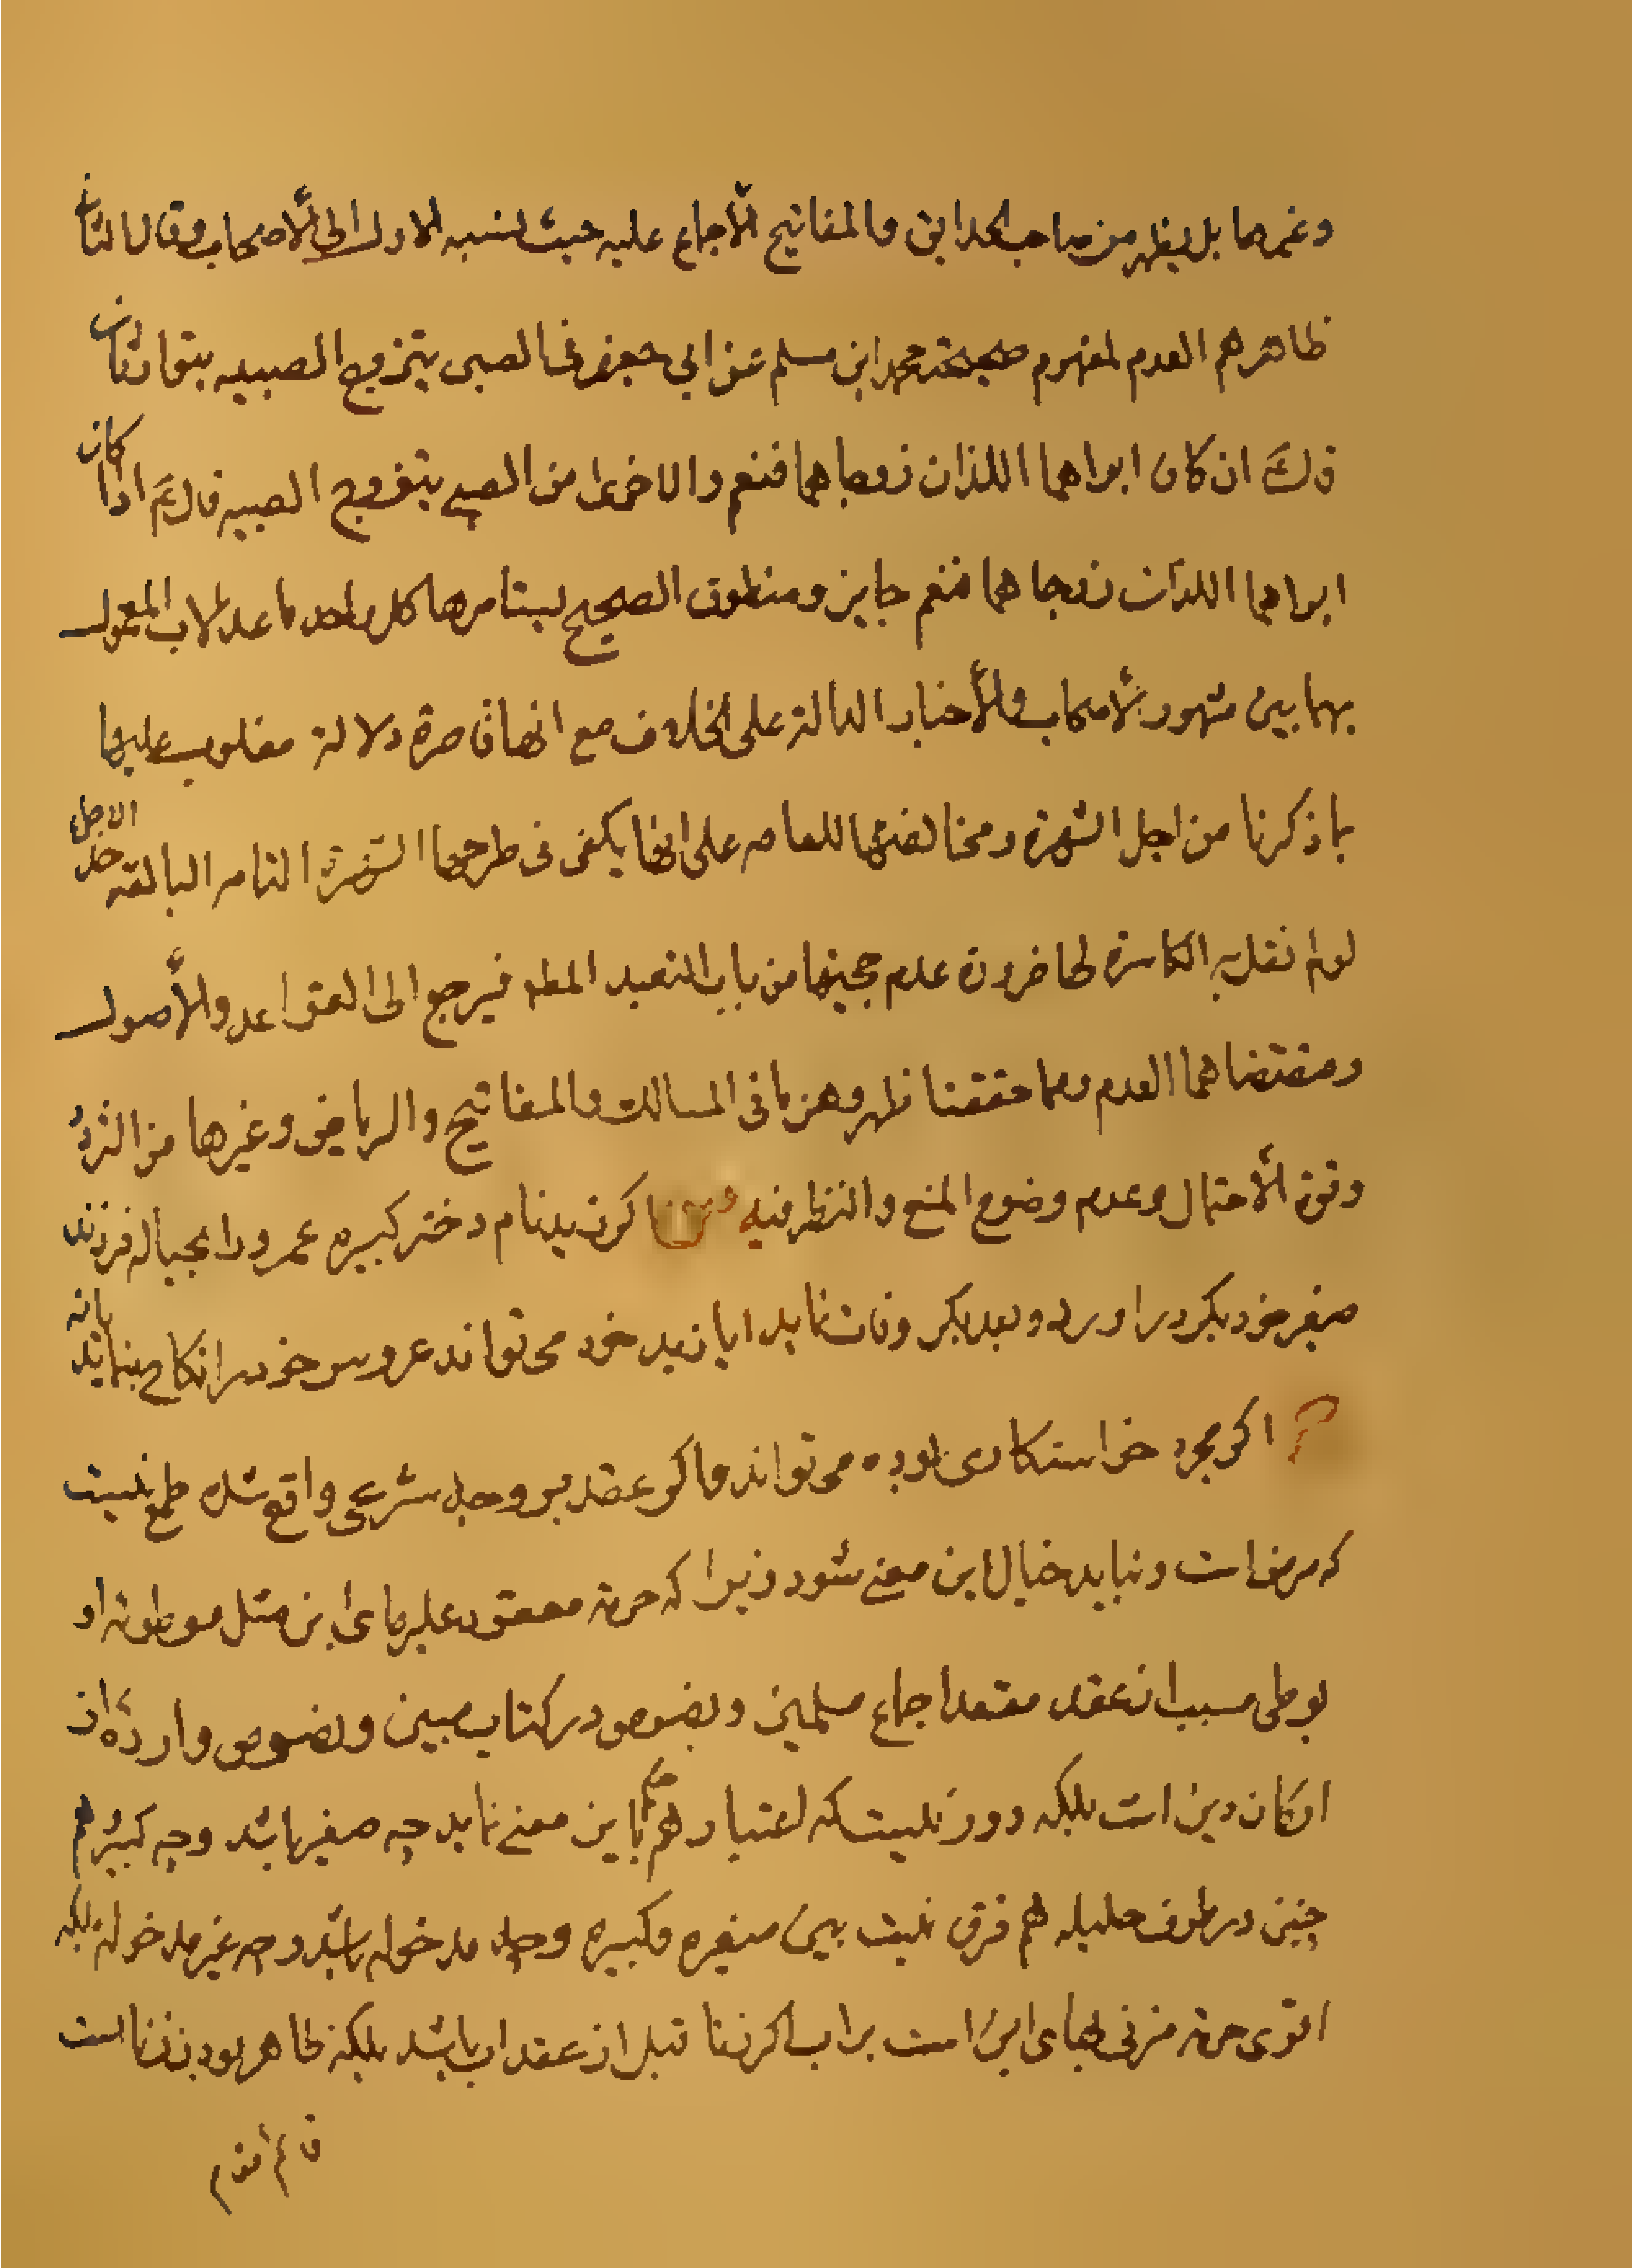 وغيرهما بل يظهر من صاحب الحدايق والمفاتيح الأجماع عليه حيث لنسبه الاول الى الأصحاب وقال الثان
ظاهرهم العدم لمفهوم صحيحة محمد ابن مسلم عن ابي جعفر في الصبى يتزوج الصبيه يتوارثان
ان كان ابواهما اللذان زوجاهما فنعم والاخرى من الصبي يتزوج الصبيه قال ع اذا كان
ابواهما اللذان زوجاهما فنعم جايز ومنطوق الصحيح يستامرها كل واحد ما عدا الاب المعمول
بهما بين مشهور الأصحاب والأخبار الدالة على الخلاف مع انها قاصرة دلالة مغلوب عليها
بما ذكرنا من اجل الشهرة ومخالفتها للعامه على انها يكفى فى طرحها الشهرة التامه البالغه حد الاجماع
لو لم نقل به الكاسرة لها ضرورة عدم حجيتها من باب التعبد المط فيرجع الى القواعد والأصول
ومقتضاهما العدم ومما حققنا ظهر وهن ما فى المسالك والمفاتيح والرياض وغيرها من التردد
وقوة الأحتمال وعدم وضوح المنع والنظر فيه كرزيد بنام دختر كبيره عمرو را بحباله فرزند
صغير خود بكر در اورد و بعد بكر وفات نمايد ايا زيد خود مى تواند عروس خود را نكاح بنمايد يا نه
ج اكر مجرد خواستكارى بوده مى تواند و اكر عقد بر وجه شرعى واقع شده طمع نيست
كه مرضات و نبايد خيال اين معنى شود زيرا كه حرمة معقود عليهاى ابن مثل موطوئه او
بوطى مسبب از عقد مقتضا اجماع مسلمين و بضوص در كتاب مبين و نصوص وارده از
اركان دين است بلكه دور نيست كه اعتبار هم حكم باين معنى نمايد چه صغير باشد و چه كبير و هم
چنين در طرف حليله هم فرق نيست بين صغيره و كبيره و چه مدخوله باشد و چه غير مدخوله بلكه
اقوى حرمة مزنى بهاى ابن است بر اب اكر زنا قبل از عقد اب باشد بلكه ظاهر بودن زنا است